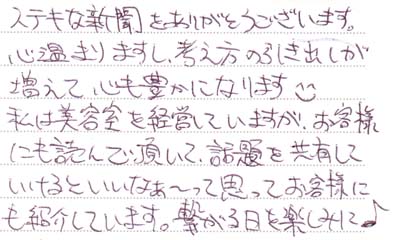 ステキな新聞をありがとうございます。
心温まりますし、考え方の引き出しが
増えて心も豊かになります☺
私は美容室を経営していますが、お客様
にも読んで頂いて、話題を共有して
いけるといいなぁ〜って思ってお客様に
も紹介しています。繋がる日を楽しみに♪